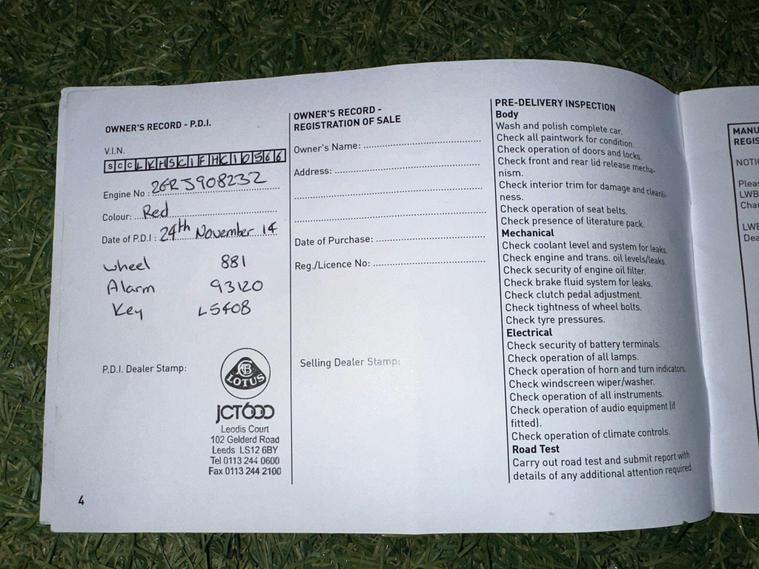 OWNER'S RECORD - P.D.I.
V.I.N.
SCCLKHSC1FHC10566
Engine No : 2GRJ908232
Colour: Red
Date of P.D.I : 24th November 14
wheel 881
Alarm 93120
Key L5408
P.D.I. Dealer Stamp:
LOTUS
JCT600
Leodis Court
102 Gelderd Road
Leeds LS12 6BY
Tel 0113 244 0600
Fax 0113 244 2100
4
OWNER'S RECORD -
REGISTRATION OF SALE
Owner's Name:
Address:
Date of Purchase:
Reg./Licence No:
Selling Dealer Stamp:
PRE-DELIVERY INSPECTION
Body
Wash and polish complete car.
Check all paintwork for condition.
Check operation of doors and locks.
Check front and rear lid release mecha-
nism.
Check interior trim for damage and cleanli-
ness.
Check operation of seat belts.
Check presence of literature pack.
Mechanical
Check coolant level and system for leaks.
Check engine and trans. oil levels/leaks.
Check security of engine oil filter.
Check brake fluid system for leaks.
Check clutch pedal adjustment.
Check tightness of wheel bolts.
Check tyre pressures.
Electrical
Check security of battery terminals.
Check operation of all lamps.
Check operation of horn and turn indicators.
Check windscreen wiper/washer.
Check operation of all instruments.
Check operation of audio equipment (if
fitted).
Check operation of climate controls.
Road Test
Carry out road test and submit report with
details of any additional attention required
MANU
REGIS
NOTI
Pleas
LWB
Cha
LWE
Dea